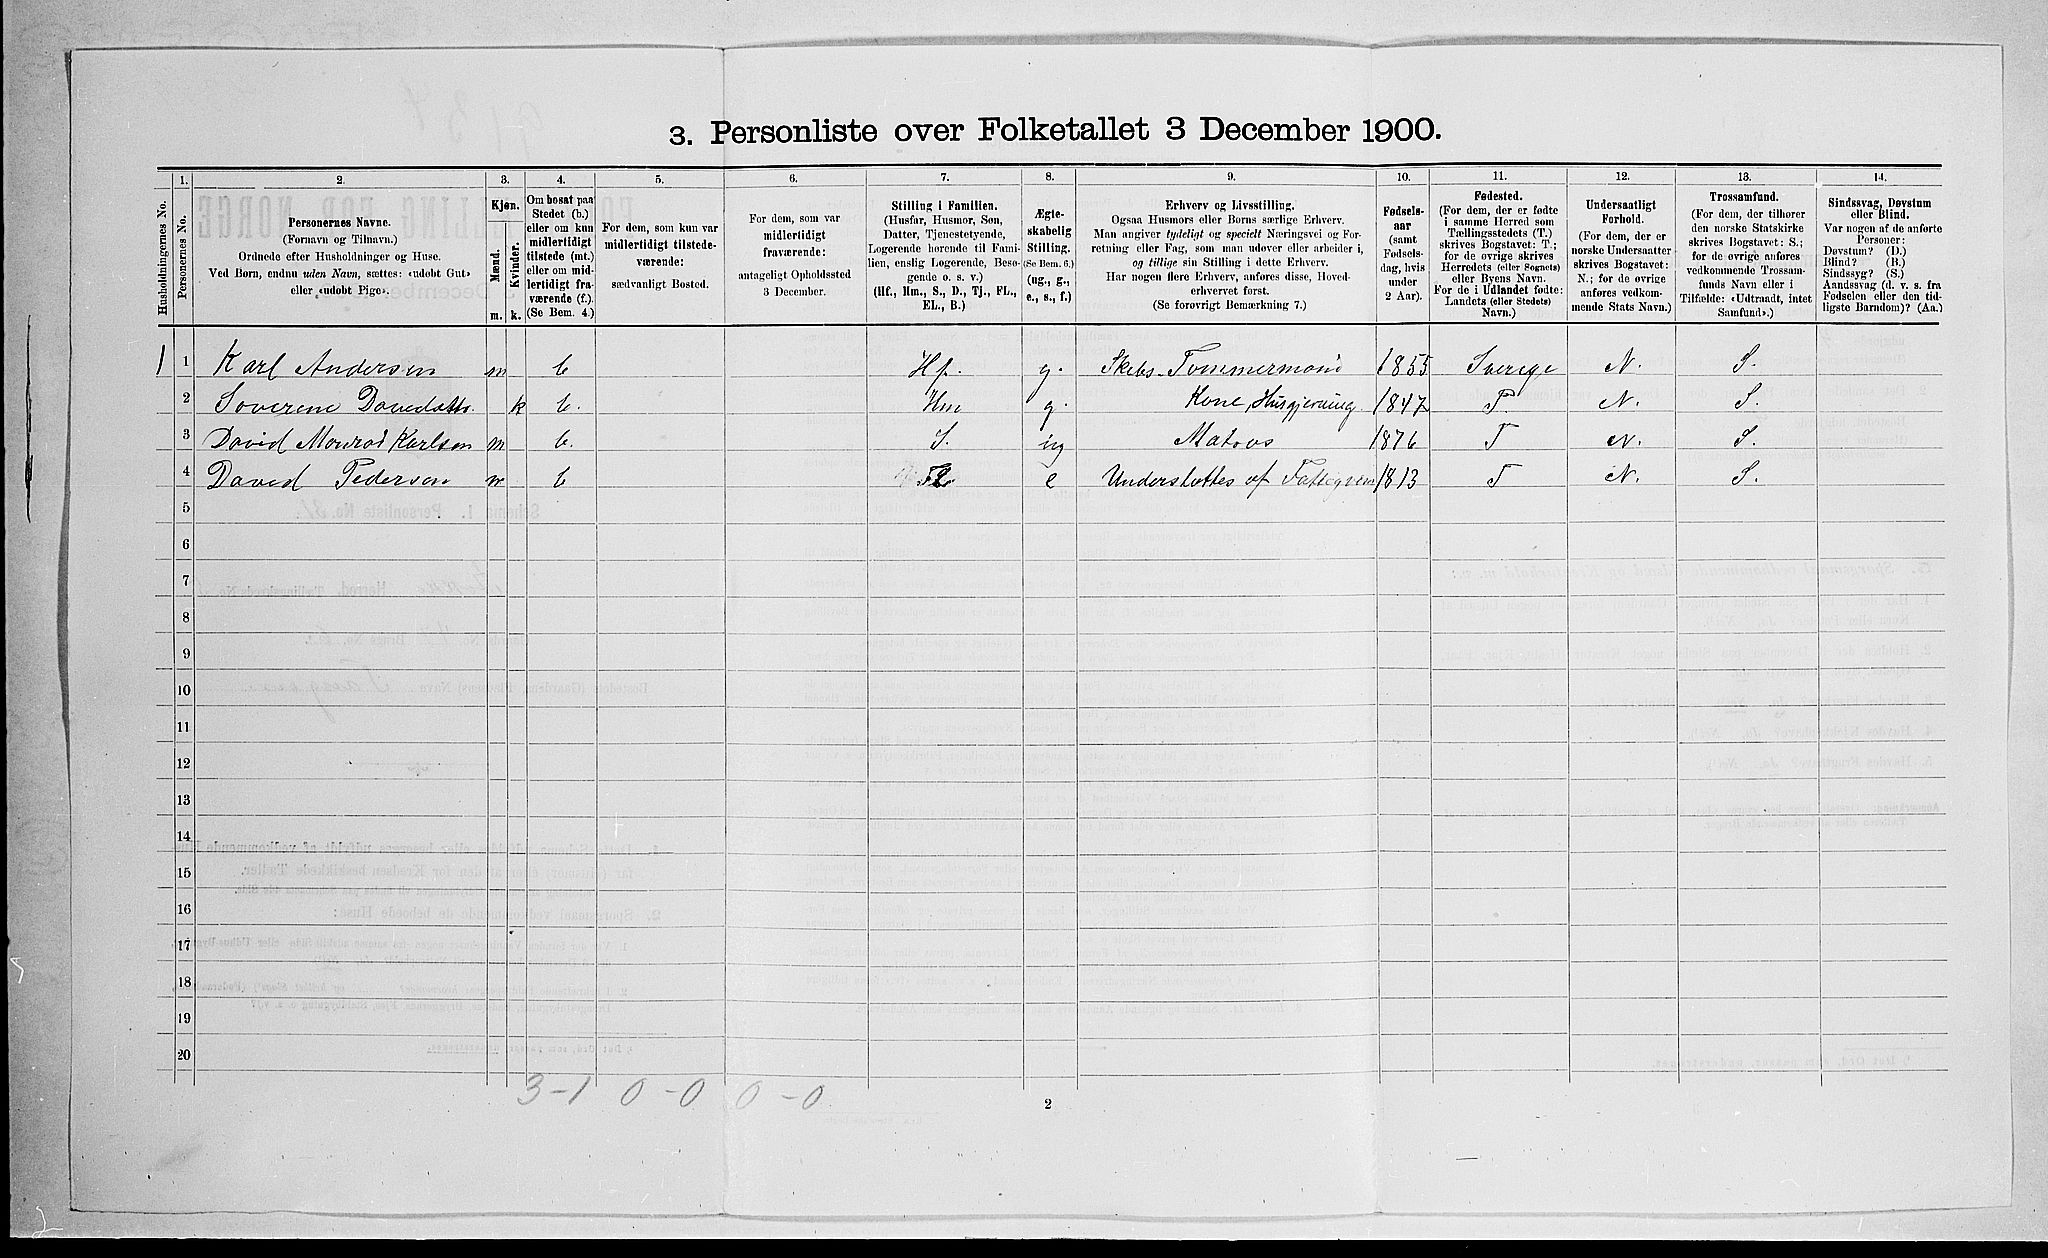 3. Personliste over Folketallet 3 December 1900.
Husholdningernes No.
1.
Personernes No.
2.
Personernes Navne.
(Fornavn og Tilnavn.)
Ordnede efter Husholdninger og Huse.
Ved Børn, endnu uden Navn, sættes: «udøbt Gut»
eller «udøbt Pige».
3.
Kjøn.
Mænd.
Kvinder.
m. k.
4.
Om bosat paa
Stedet (b.)
eller om kun
midlertidigt
tilstede (mt.)
eller om mid-
lertidigt fra-
værende (f.).
(Se Bem. 4.)
5.
For dem, som kun var
midlertidigt tilstede-
værende:
sædvanligt Bosted.
6.
For dem, som var
midlertidigt
fraværende:
antageligt Opholdssted
3 December.
7.
Stilling i Familien.
(Husfar, Husmor, Søn,
Datter, Tjenestetyende,
Logerende hørende til Fami-
lien, enslig Logerende, Besø-
gende o. s. v.)
(Hf., Hm., S., D., Tj., FL.,
EL., B.)
8.
Ægte-
skabelig
Stilling.
(Se Bem. 6.)
(ug., g.,
e., s., f.)
9.
Erhverv og Livsstilling.
Ogsaa Husmors eller Børns særlige Erhverv.
Man angiver tydeligt og specielt Næringsvei og For-
retning eller Fag, som man udøver eller arbeider i,
og tillige sin Stilling i dette Erhverv.
Har nogen flere Erhverv, anføres disse, Hoved-
erhvervet først.
(Se forøvrigt Bemærkning 7.)
10.
Fødsels-
aar
(samt
Fødsels-
dag, hvis
under
2 Aar).
11.
Fødested.
(For dem, der er fødte
i samme Herred som
Tællingsstedets (T.)
skrives Bogstavet: T.;
for de øvrige skrives
Herredets (eller Sognets)
eller Byens Navn.
For de i Udlandet fødte:
Landets (eller Stedets)
Navn.)
12.
Undersaatligt
Forhold.
(For dem, der er
norske Undersaatter
skrives Bogstavet:
N.; for de øvrige
anføres vedkom-
mende Stats Navn.)
13.
Trossamfund.
(For dem, der tilhører
den norske Statskirke
skrives Bogstavet: S.;
for de øvrige anføres
vedkommende Trossam-
funds Navn eller i
Tilfælde: «Udtraadt, intet
Samfund».)
14.
Sindssvag, Døvstum
eller Blind.
Var nogen af de anførte
Personer:
Døvstum? (D.)
Blind? (B.)
Sindssyg? (S.)
Aandssvag (d. v. s. fra
Fødselen eller den tid-
ligste Barndom)? (Aa.)
1 1 Karl Andersen m b Hf. g. Skibs-Tømmermand 1855 Sverige N. S.
2 Soverene Davidsdtr. k b. Hm g. Kone, Husgjerning 1847 T. N. S.
3 David Monrad Karlsen m b. S. ug Matros 1876 T N. S.
4 David Pedersen m b FL e Understøttes af Fattigvæs 1813 T N. S.
5
6
7
8
9
10
11
12
13
14
15
16
17
18
19
20
3-1 0-0 0-0
2